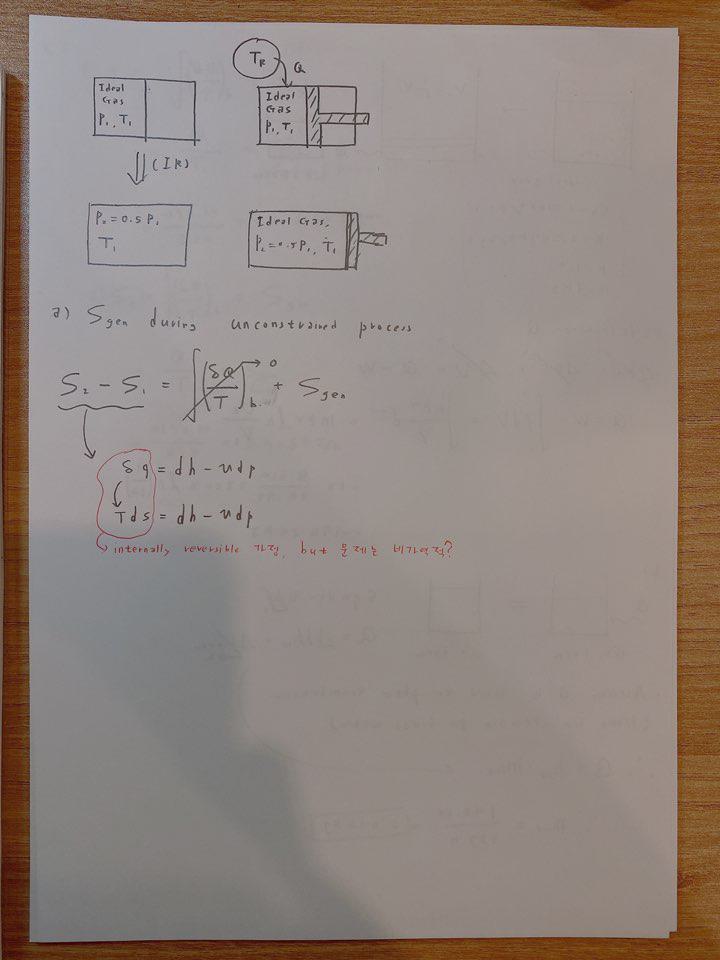 T_R Q
Ideal
Gas
P₁, T₁
Ideal
Gas
P₁, T₁
(IR)
P₂ = 0.5 P₁
T₁
Ideal Gas,
P₂ = 0.5 P₁, T₁
a) Sgen during unconstrained process
S₂ - S₁ = ∫(δQ/T)b. → 0 + Sgen
δq = dh - vdp
Tds = dh - vdp
internally reversible 가정, but 문제는 비가역적?